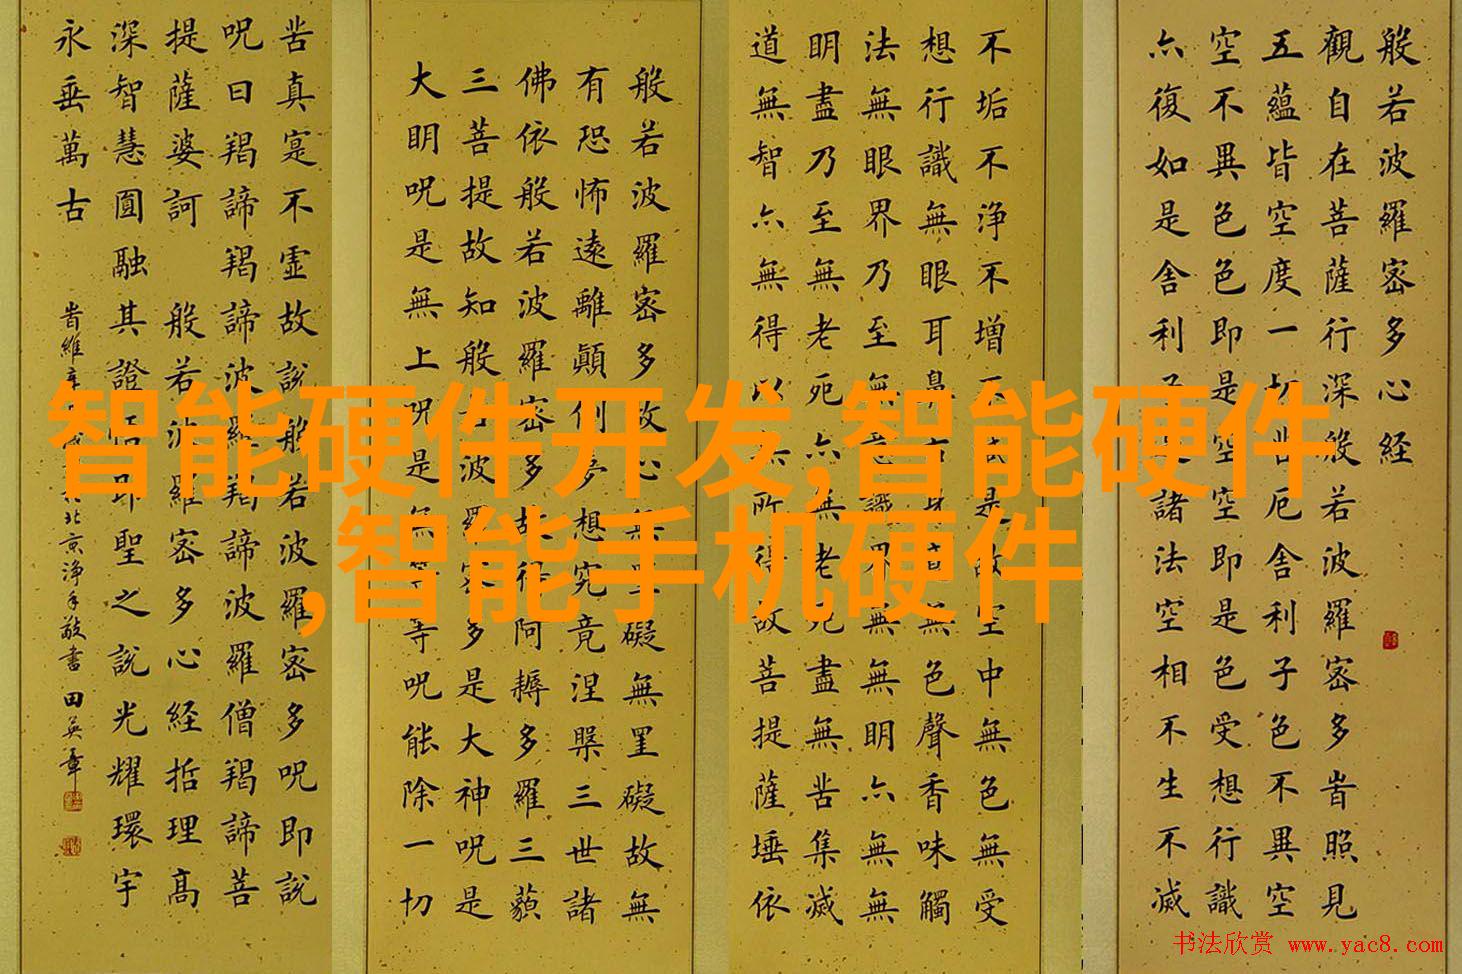 般若波羅密多心経
觀自在菩薩行深般若波羅密多旹照見
五蘊皆空度一切苦厄舍利子色不異空
空不異色色即是空空即是色受想行識
亦復如是舍利子是諸法空相不生不滅
不垢不淨不增不減是故空中無色無受
想行識無眼耳鼻舌身意無色聲香味觸
法無眼界乃至無意識界無無明亦無無
明盡乃至無老死亦無老死盡無苦集滅
道無智亦無得以無所得故菩提薩埵依
般若波羅密多故心無罣礙無罣礙故無
有恐怖遠離顛倒夢想究竟涅槃三世諸
佛依般若波羅密多故得阿耨多羅三藐
三菩提故知般若波羅密多是大神呪是
大明呪是無上呪是無等等呪能除一切
苦真寔不虛故說般若波羅密多呪即說
呪曰羯諦羯諦波羅羯諦波羅僧羯諦菩
提薩婆訶 般若波羅密多心経哲理高
深智慧圓融其證悟即聖之說光耀環宇
永垂萬古
旹維 北京淨手敬書 田英章
智能硬件开发,智能硬件
,智能手机硬件
书法欣赏 www.yac8.com